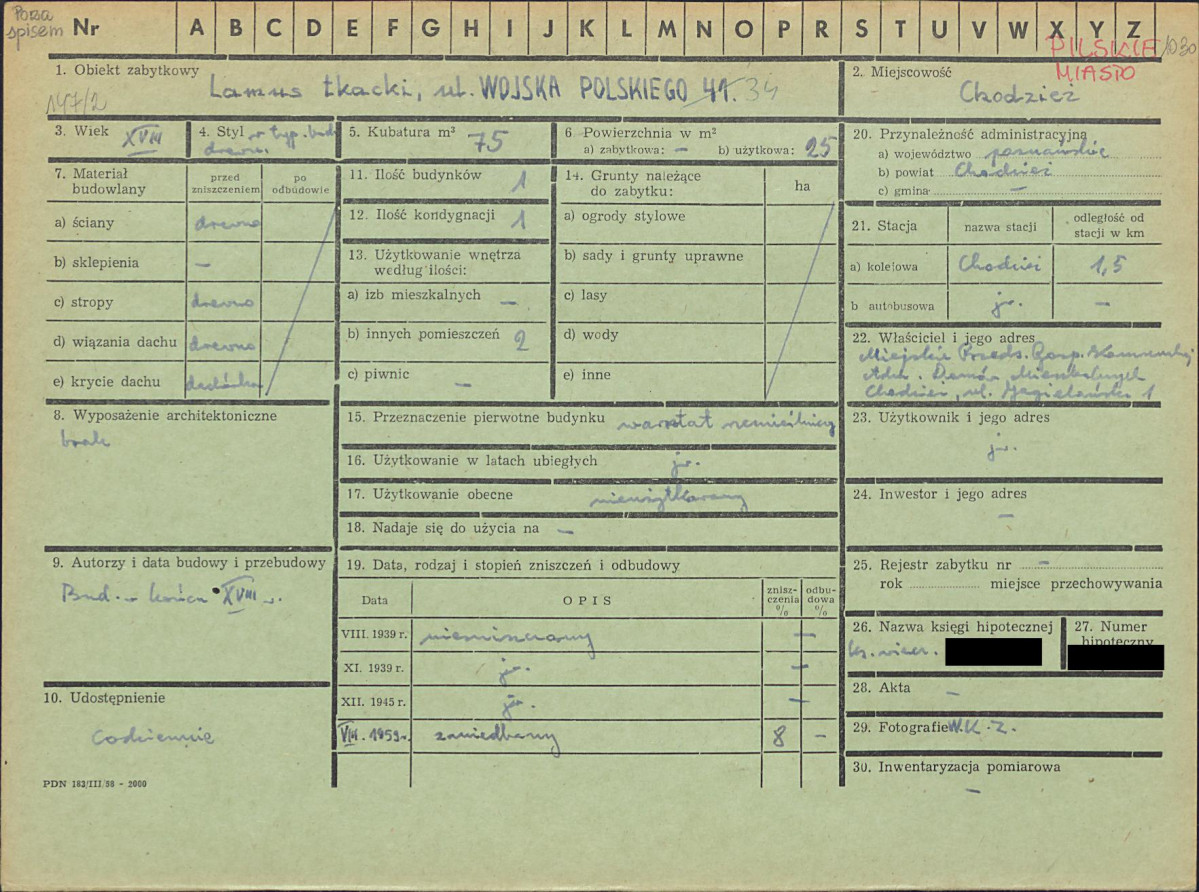 Poza
spisem
Nr A B C D E F G H I J K L M N O P R S T U V W X Y Z
PILSKIE /1030
MIASTO
1. Obiekt zabytkowy
Lamus tkacki, ul. WOJSKA POLSKIEGO 41. 34
147/2
2. Miejscowość
Chodzież
3. Wiek XVIII
4. Styl w typ. bud.
drewn.
5. Kubatura m³ 75
6 Powierzchnia w m²
a) zabytkowa: — b) użytkowa: 25
7. Materiał
budowlany
przed
zniszczeniem
po
odbudowie
a) ściany drewno
b) sklepienia —
c) stropy drewno
d) wiązania dachu drewno
e) krycie dachu dachówka
8. Wyposażenie architektoniczne
brak
9. Autorzy i data budowy i przebudowy
Bud. w końcu XVIII w.
10. Udostępnienie
codziennie
PDN 183/III/58 - 2000
11. Ilość budynków 1
12. Ilość kondygnacji 1
13. Użytkowanie wnętrza
według ilości:
a) izb mieszkalnych —
b) innych pomieszczeń 2
c) piwnic —
14. Grunty należące
do zabytku:
ha
a) ogrody stylowe
b) sady i grunty uprawne
c) lasy
d) wody
e) inne
15. Przeznaczenie pierwotne budynku warsztat rzemieślniczy
16. Użytkowanie w latach ubiegłych jw.
17. Użytkowanie obecne nieużytkowany
18. Nadaje się do użycia na —
19. Data, rodzaj i stopień zniszczeń i odbudowy
Data
OPIS
znisz-
czenia
%
odbu-
dowa
%
VIII. 1939 r. niezniszczony —
XI. 1939 r. jw. —
XII. 1945 r. jw. —
VIII. 1959 r. zaniedbany 8 —
20. Przynależność administracyjna
a) województwo poznańskie
b) powiat Chodzież
c) gmina —
21. Stacja
nazwa stacji
odległość od
stacji w km
a) kolejowa Chodzież 1,5
b autobusowa jw. —
22. Właściciel i jego adres
Miejskie Przeds. Gosp. Komunalnej
Adm. Domów Mieszkalnych
Chodzież, ul. Jagiellońska 1
23. Użytkownik i jego adres
jw.
24. Inwestor i jego adres
—
25. Rejestr zabytku nr —
rok miejsce przechowywania
26. Nazwa księgi hipotecznej
ks. wiecz.
27. Numer
hipoteczny
28. Akta —
29. Fotografie W.K.Z.
30. Inwentaryzacja pomiarowa
—